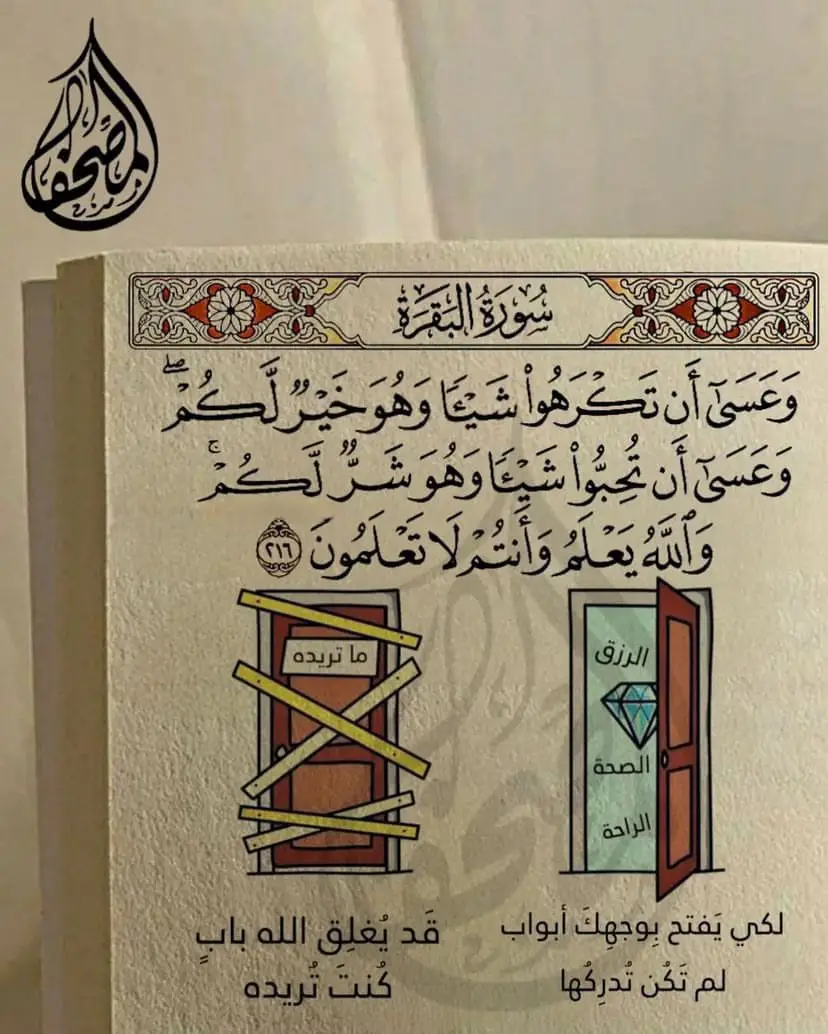 المصحف
سُورَةُ البَقَرَةِ
وَعَسَىٰٓ أَن تَكْرَهُوا۟ شَيْـًٔا وَهُوَ خَيْرٌ لَّكُمْ ۖ
وَعَسَىٰٓ أَن تُحِبُّوا۟ شَيْـًٔا وَهُوَ شَرٌّ لَّكُمْ ۚ
وَٱللَّهُ يَعْلَمُ وَأَنتُمْ لَا تَعْلَمُونَ ٢١٦
الرزق
الصحة
الراحة
ما تريده
لكي يَفتح بِوجهِكَ أبواب
لم تَكُن تُدرِكُها
قَد يُغلِق الله بابٍ
كُنتَ تُريده